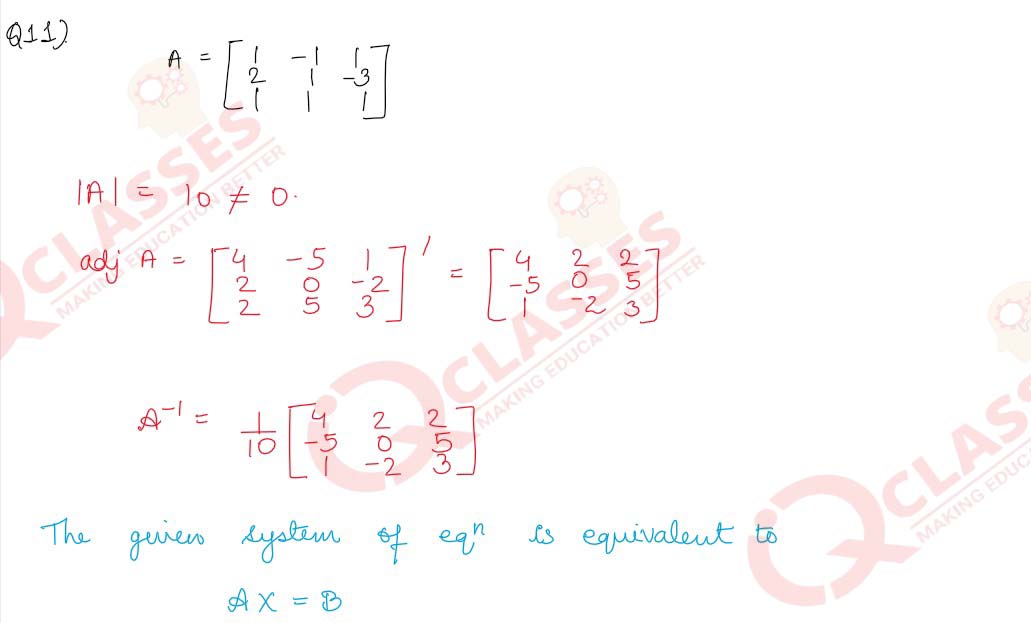 Q11)
A = [ 1 -1 1
2 1 -3
1 1 1 ]
|A| = 10 ≠ 0.
adj A = [ 4 -5 1
2 0 -2
2 5 3 ]' = [ 4 2 2
-5 0 5
1 -2 3 ]
A⁻¹ = 1/10 [ 4 2 2
-5 0 5
1 -2 3 ]
The given system of eqⁿ is equivalent to
AX = B
CLASSES
MAKING EDUCATION BETTER
CLASSES
MAKING EDUCATION BETTER
CLAS
MAKING EDUC